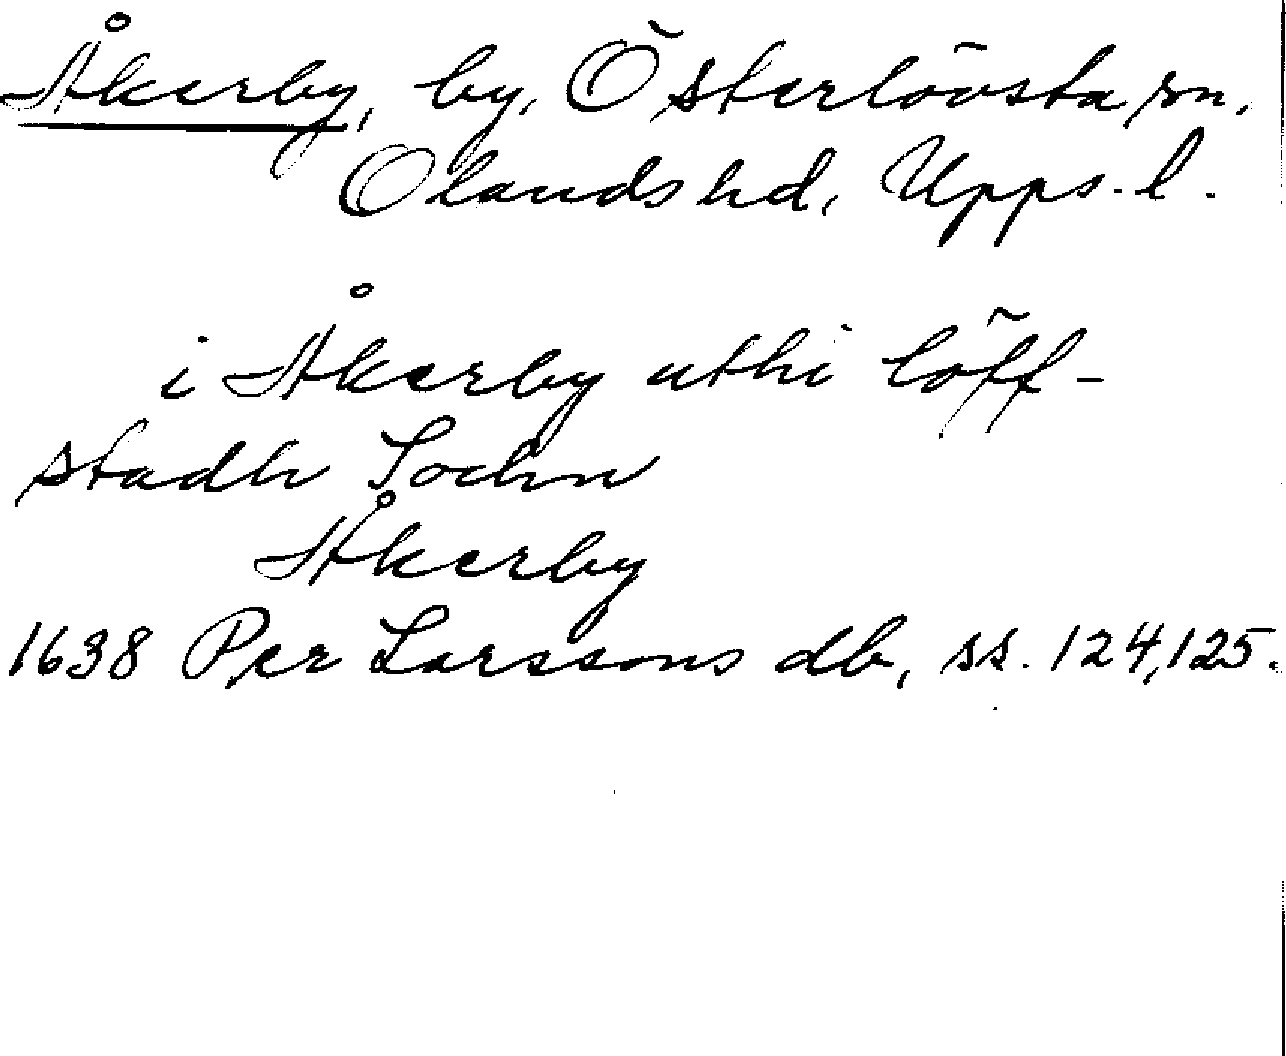 Åkerby, by, Österlövsta sn,
Olands hd, Upps. l.
i Åkerby uthi löff-
stadh Sochn
Åkerby
1638 Per Larssons db, ss. 124, 125.